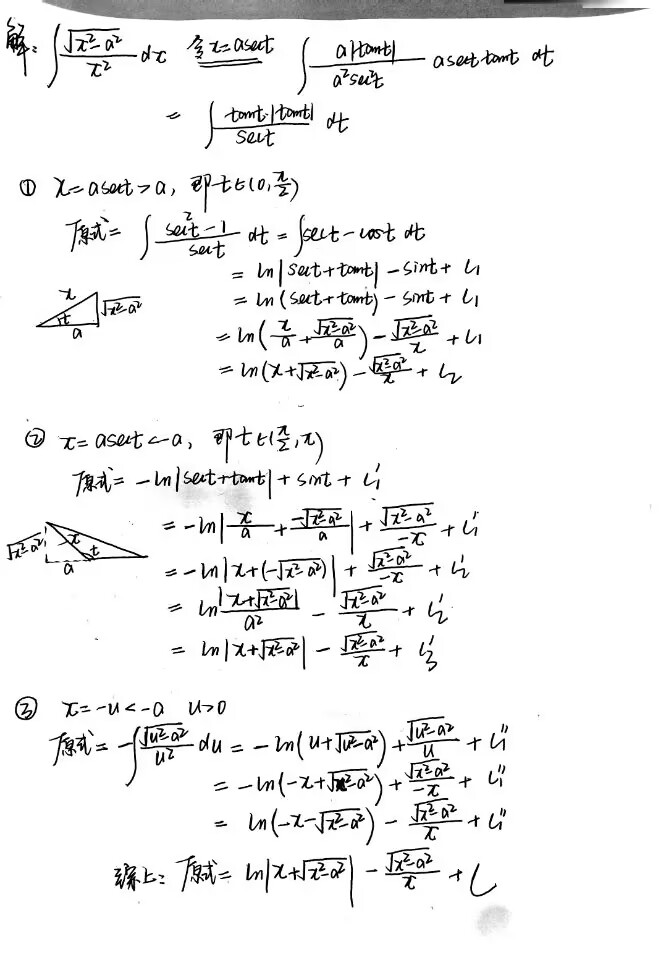 解: ∫ √(x²-a²)/x² dx 令x=asect ∫ a|tant|/(a²sec²t) asect tant dt
= ∫ tant·|tant|/sect dt
① x=asect>a, 即t∈(0,π/2)
原式= ∫ (sec²t-1)/sect dt = ∫sect-cost dt
= ln|sect+tant| -sint+C₁
= ln(sect+tant) -sint+C₁
x √(x²-a²) t a
= ln(x/a+√(x²-a²)/a) - √(x²-a²)/x + C₁
= ln(x+√(x²-a²)) - √(x²-a²)/x + C₂
② x=asect<-a, 即t∈(π/2,π)
原式= -ln|sect+tant| + sint + C₁'
√(x²-a²) -x t a
= -ln|x/a + -√(x²-a²)/a| + √(x²-a²)/-x + C₁'
= -ln|x+(-√(x²-a²))| + √(x²-a²)/-x + C₂'
= ln|x+√(x²-a²)|/a² - √(x²-a²)/x + C₂'
= ln|x+√(x²-a²)| - √(x²-a²)/x + C₃'
③ x=-u<-a u>0
原式= -∫ √(u²-a²)/u² du = -ln(u+√(u²-a²)) + √(u²-a²)/u + C₁''
= -ln(-x+√(x²-a²)) + √(x²-a²)/-x + C₁''
= ln(-x-√(x²-a²)) - √(x²-a²)/x + C₁''
综上: 原式= ln|x+√(x²-a²)| - √(x²-a²)/x + C